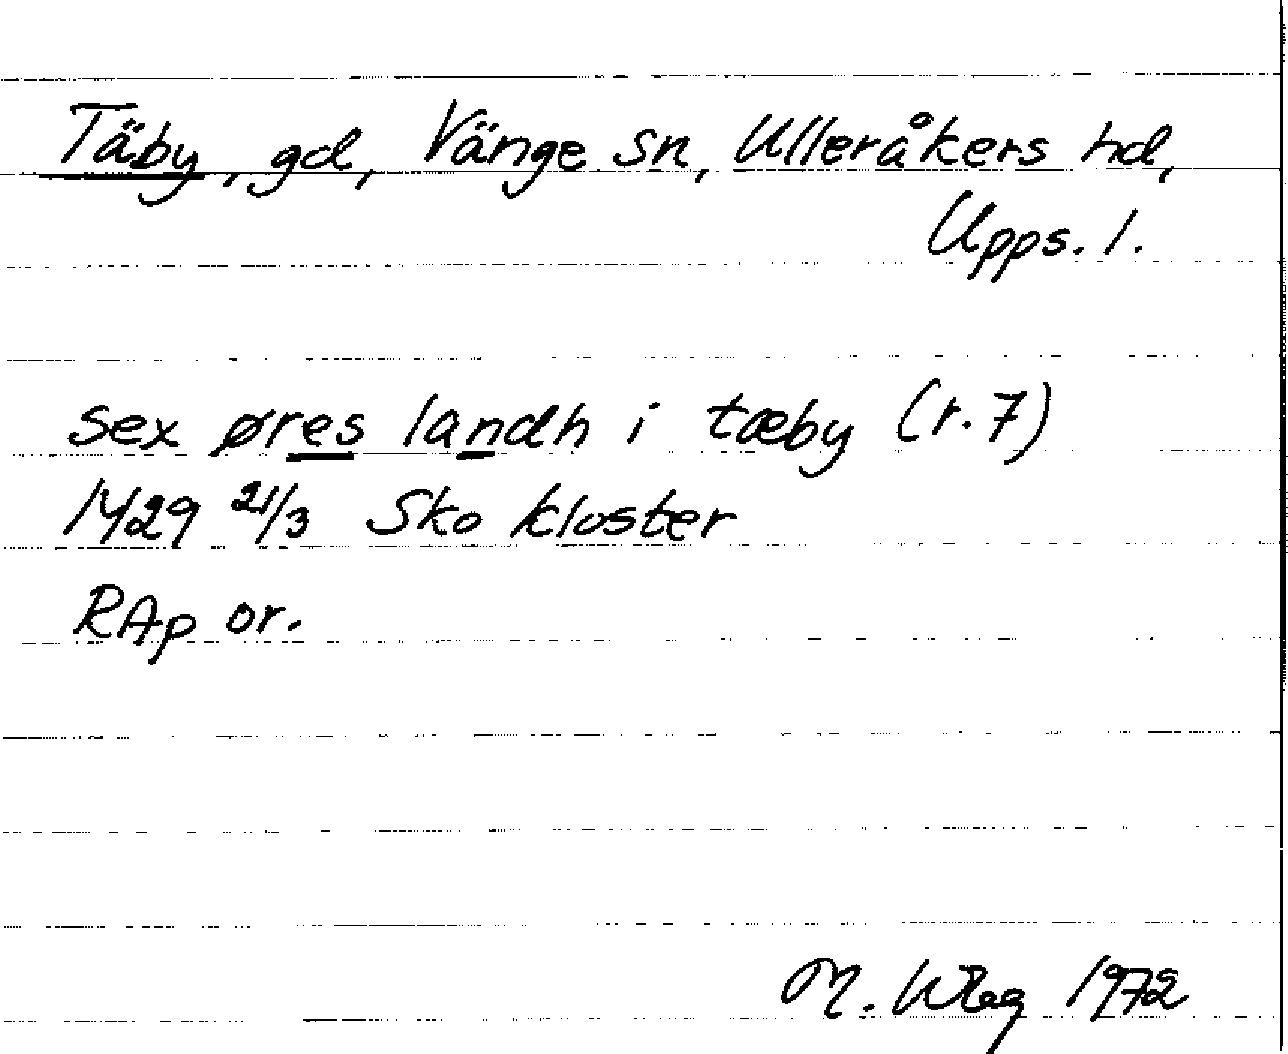 Täby, gd, Vänge sn, Ulleråkers hd,
Upps. l.
sex øres landh i tæby (r. 7)
1429 21/3 Sko kloster
RAp or.
M. Wbg 1972